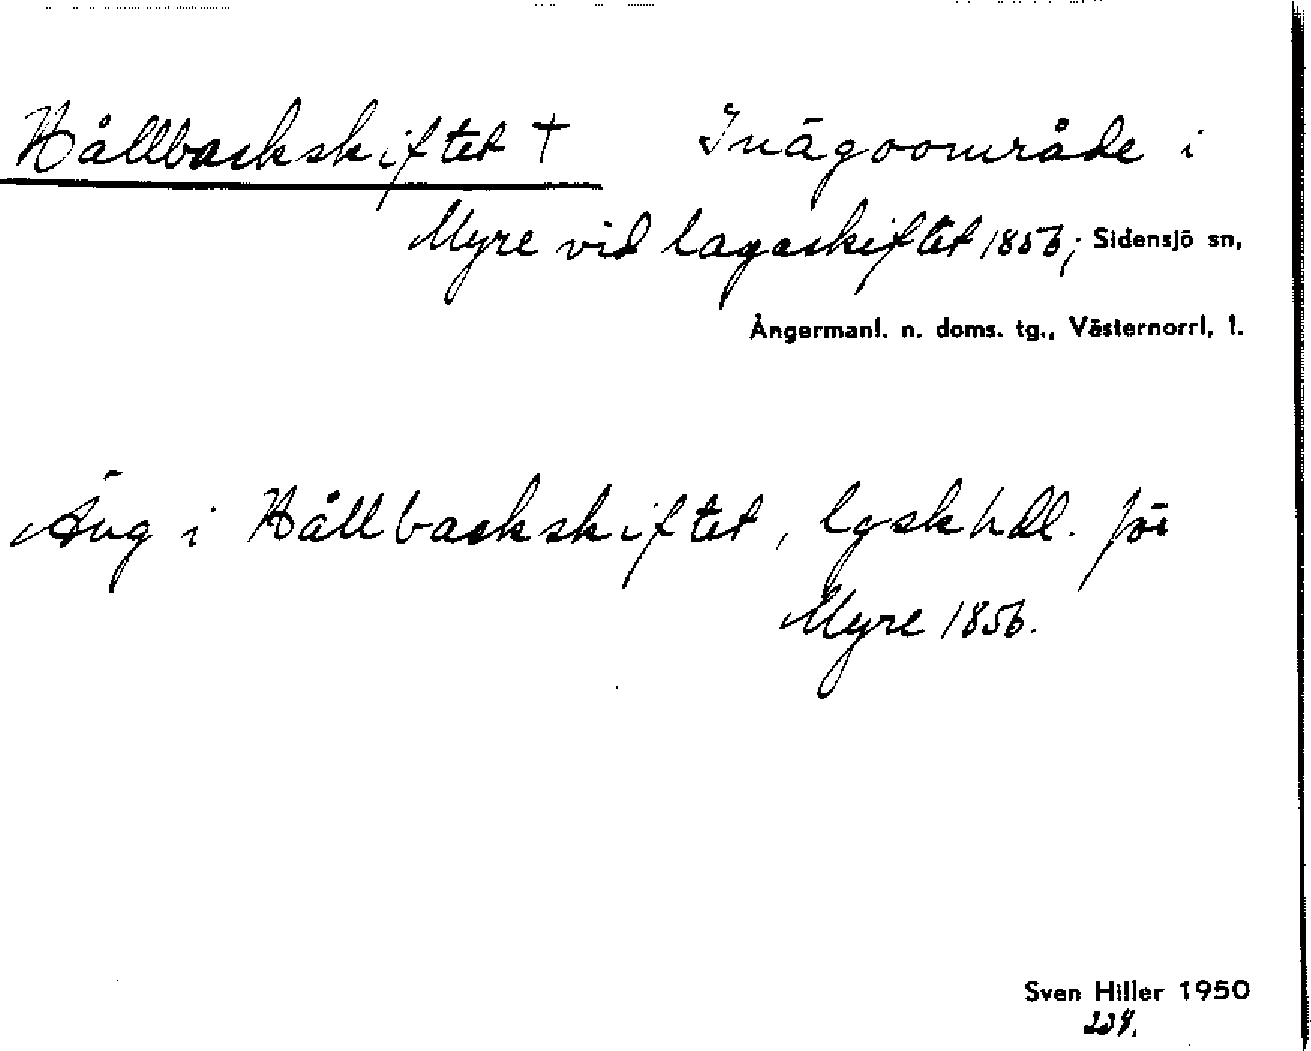 Hållbackskiftet † Inägoområde i
Myre vid lagaskiftet 1856; Sidensjö sn,
Ångermanl. n. doms. tg., Västernorrl. l.
Äng i Hållbackskiftet, lgskhdl. för
Myre 1856.
Sven Hiller 1950